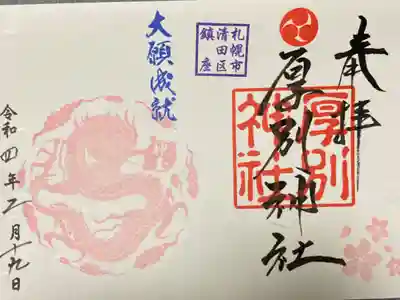 奉拝
厚別神社
厚別
神社
札幌市
清田区
鎮座
大願成就
令和四年二月十九日